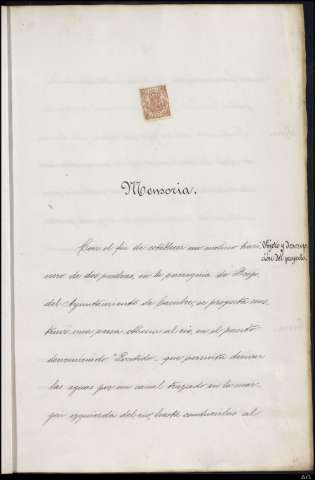 Memoria.
Objeto y descrip-
ción del proyecto.
Con el fin de establecer un molino hari-
nero de dos piedras, en la parroquia de
del Ayuntamiento de Cambre, se proyecta cons-
truir una presa oblicua al rio, en el punto
denominado "", que permita derivar
las aguas por un canal trazado en la mar-
gen izquierda del rio, hasta conducirlas al